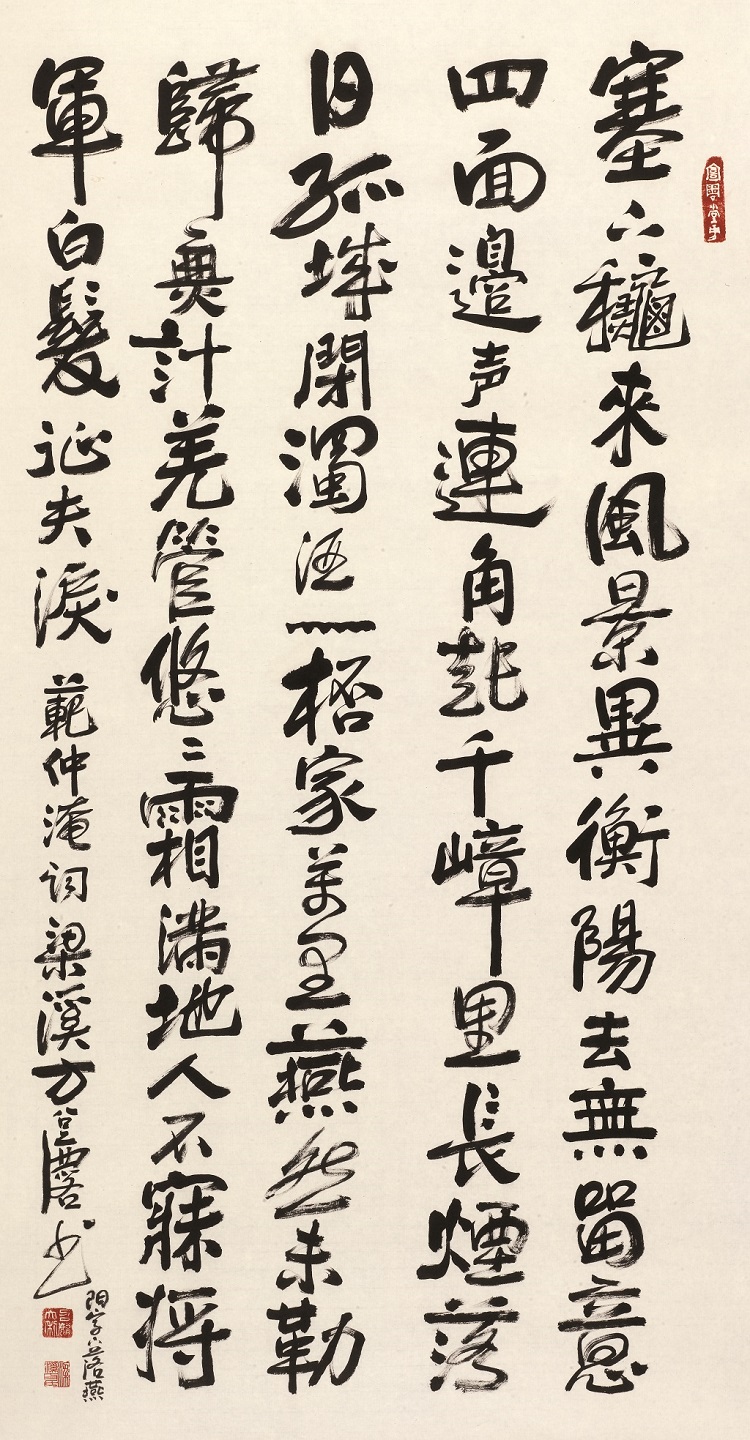 塞下龝來風景異衡陽去無留意
四面邊声連角起千嶂里長煙落
日孤城閉濁酒一桮家萬里燕然未勒
歸無計羌管悠〻霜滿地人不寐將
軍白髮征夫淚 範仲淹詞梁溪方書
陽字下落燕